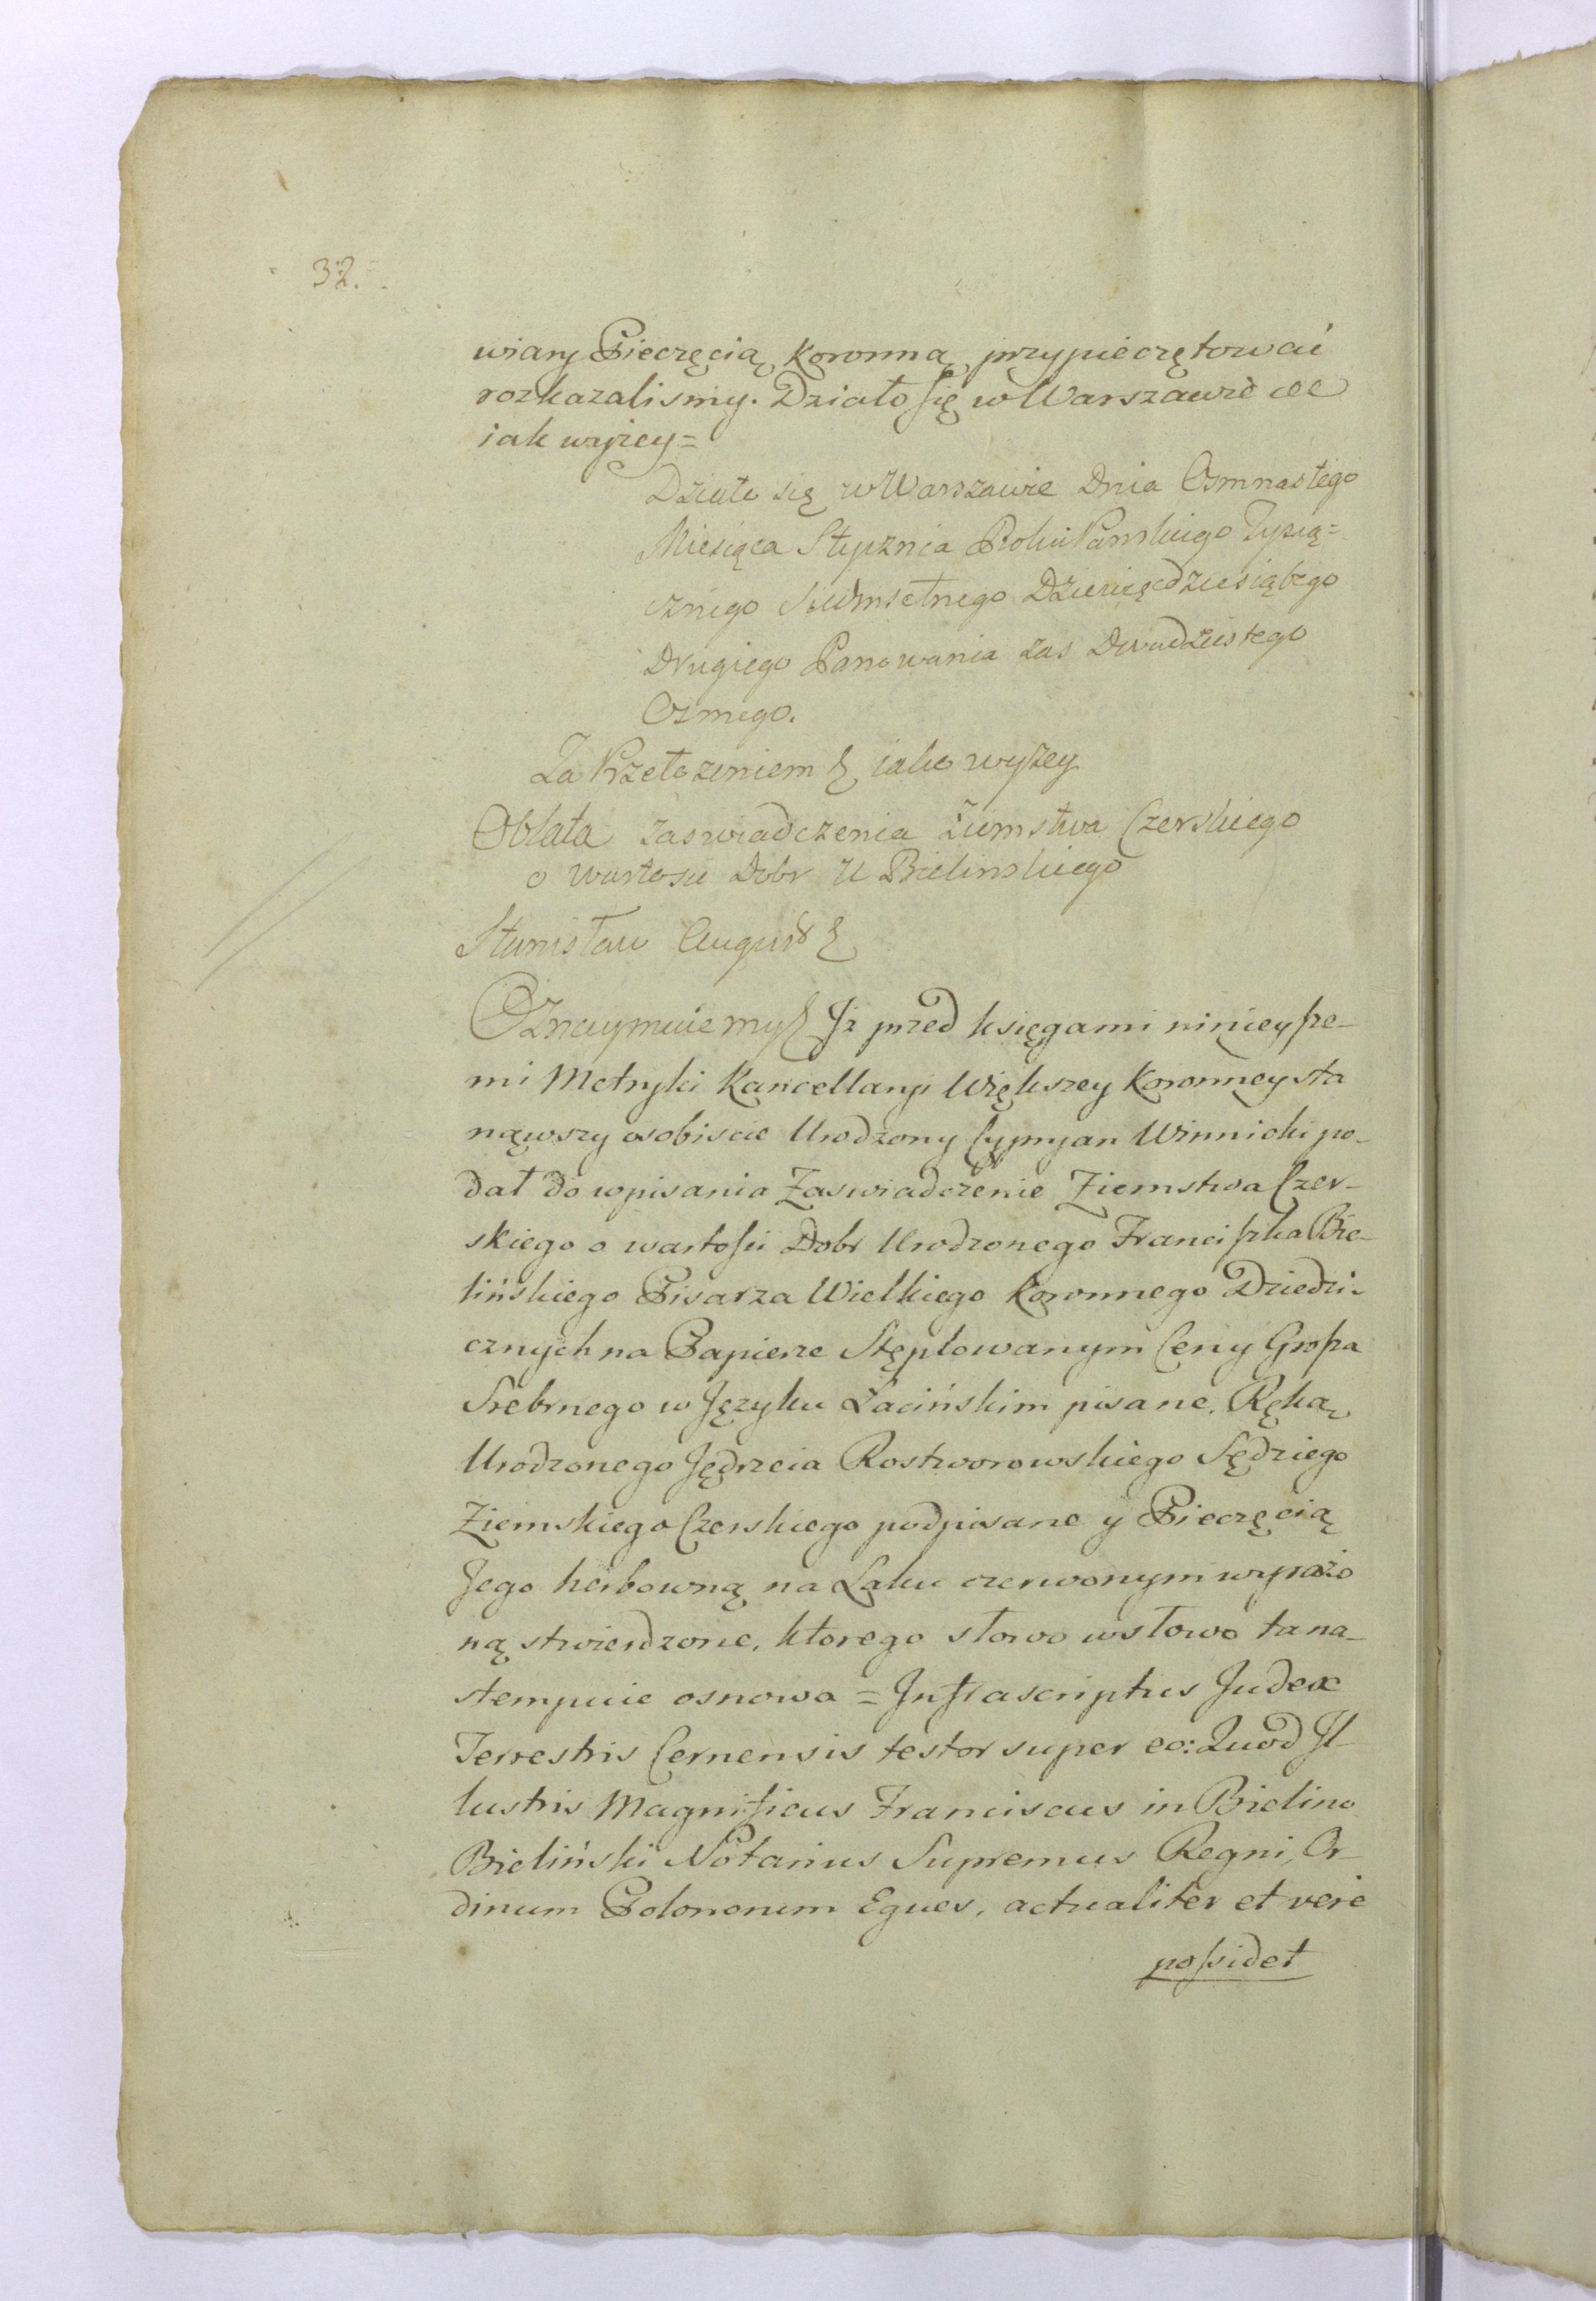 32.
wiary Pieczęcią Koronną przypieczętować
rozkazalismy. Działo się w Warszawie
iak wyżey=
Działo się w Warszawie Dnia Osmnastego
Miesiąca Stycznia Roku Panskiego Tysią=
cznego Siedmsetnego Dziewięcdziesiątego
Drugiego Panowania zas Dwudziestego
Osmego.
Za Przełożeniem & iako wyżey
Oblata zaswiadczenia Ziemstwa Czerskiego
o wartosci Dobr U Bielinskiego
Stanisław August &
Oznaymuiemy & Iż przed księgami ninieysze-
mi Metryki Kancellaryi Większey Koronney sta
nąwszy osobiscie Urodzony Cypryan Winnicki po-
dał do wpisania Zaswiadczenie Ziemstwa Czer-
skiego o wartości Dobr Urodzonego Franciszka Bie-
lińskiego Pisarza Wielkiego Koronnego Dziedzi-
cznych na Papierze Stęplowanym Ceny Grosza
Srebrnego w Języku Łacińskim pisane, Ręką
Urodzonego Jędrzeia Rostworowskiego Sędziego
Ziemskiego Czerskiego podpisane y Pieczęcią
Jego herbowną na Laku czerwonym wyrażo
ną stwierdzone, ktorego słowo wsłowo ta na-
stempuie osnowa = Infrascriptus Judex
Terrestris Cernensis testor super eo: Quod Il-
lustris Magnificus Franciscus in Bielino
Bieliński Notarius Supremus Regni, Or-
dinum Polonorum Eques, actualiter et vere
possidet